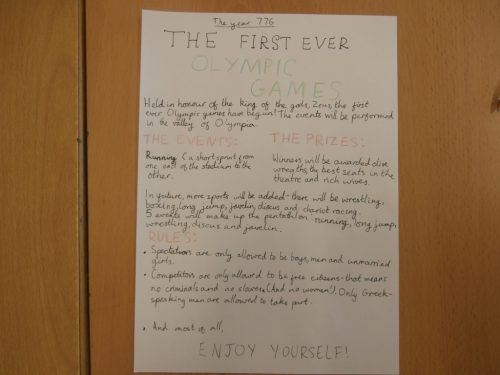 The year 776
THE FIRST EVER
OLYMPIC
GAMES
Held in honour of the king of the gods, Zeus, the first
ever Olympic games have begun! The events will be performed
in the valley of Olympia.
THE EVENTS:
Running (a short sprint from
one end of the stadium to the
other.
THE PRIZES:
Winners will be awarded olive
wreaths, the best seats in the
theatre and rich wives.
In future, more sports will be added - there will be wrestling,
boxing, long jump, javelin, discus and chariot racing.
5 events will make up the pentathlon - running, long jump,
wrestling, discus and javelin.
RULES:
• Spectators are only allowed to be boys, men and unmarried
girls.
• Competitors are only allowed to be free citizens - that means
no criminals and no slaves (And no women!). Only Greek-
speaking men are allowed to take part.
• And most of all,
ENJOY YOURSELF!